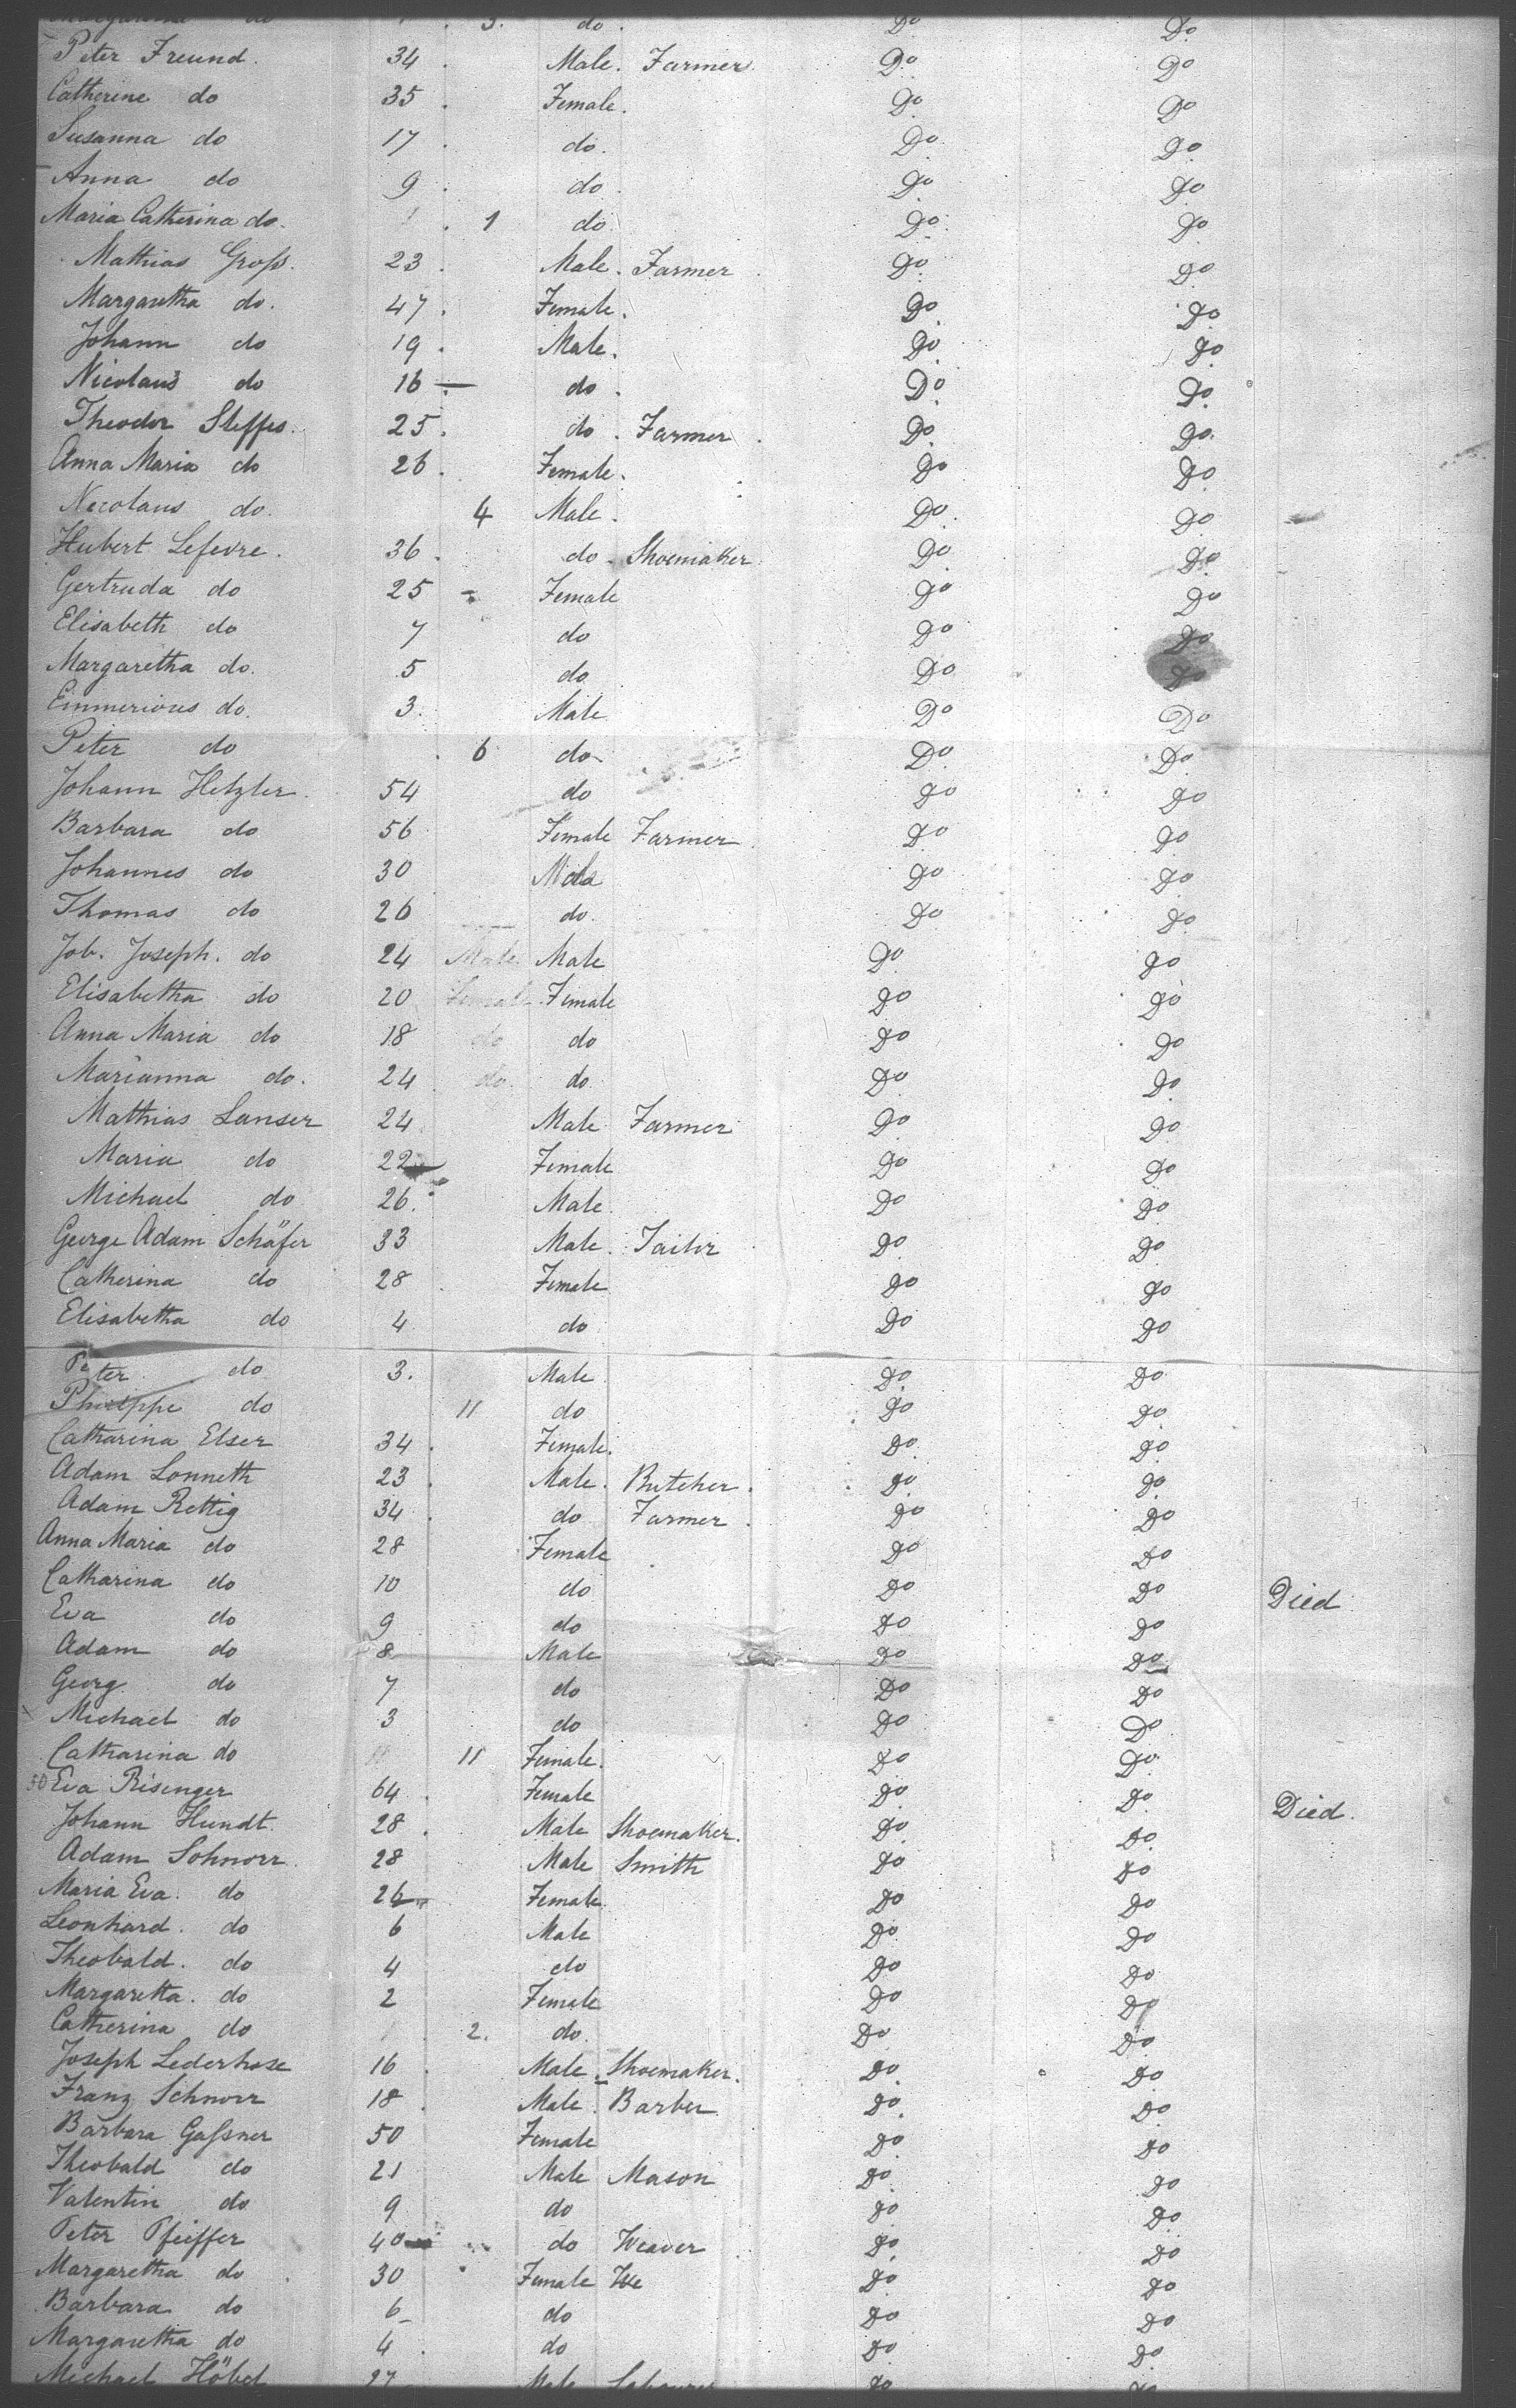 3. do. Do Do
Peter Freund. 34. Male. Farmer. Do Do
Catherine do 35. Female. Do Do
Susanna do 17. do. Do Do
Anna do 9. do. Do Do
Maria Catherina do. 1 do. Do Do
Mathias Groſs. 23. Male. Farmer. Do Do
Margaretha do. 47. Female. Do Do
Johann do 19. Male. Do Do
Nicolaus do 16 do. Do Do
Theodor Steffes. 25. do. Farmer. Do Do
Anna Maria do 26. Female. Do Do
Nicolaus do. 4 Male. Do Do
Hubert Lefevre. 36. do. Shoemaker Do Do
Gertruda do 25 - Female Do Do
Elisabeth do 7 do Do Do
Margaretha do. 5 do. Do Do
Emmerious do. 3. Male Do Do
Peter do . 6 do. Do Do
Johann Hetzler. 54 do Do Do
Barbara do 56 Female Farmer. Do Do
Johannes do 30 Male Do Do
Thomas do 26 do. Do Do
Job. Joseph. do 24 Male Male Do Do
Elisabetha do 20 Female Female Do Do
Anna Maria do 18 do do Do Do
Marianna do. 24 do do Do Do
Mathias Lanser 24 Male Farmer Do Do
Maria do 22 Female Do Do
Michael do 26. Male. Do Do
George Adam Schäfer 33 Male. Tailor Do Do
Catherina do 28. Female Do Do
Elisabetha do 4 do Do Do
Peter do 3. Male Do Do
Philippe do 11 do Do Do
Catharina Elser 34. Female. Do Do
Adam Lonneth 23. Male. Butcher. Do Do
Adam Rettig 34. do Farmer. Do Do
Anna Maria do 28 Female Do Do
Catharina do 10 do Do Do Died
Eva do 9 do Do Do
Adam do 8 Male Do Do
Georg do 7 do Do Do
Michael do 3 do Do Do
Catharina do 11 Female. Do Do
50 Eva Risenger 64. Female Do Do Died.
Johann Hundt. 28. Male Shoemaker. Do Do
Adam Schnorr. 28 Male Smith Do Do
Maria Eva. do 26 Female Do Do
Leonhard. do 6 Male Do Do
Theobald. do 4 do Do Do
Margaretta. do 2 Female Do Do
Catherina do 2. do. Do Do
Joseph Lederhose 16. Male. Shoemaker. Do Do
Franz Schnorr 18. Male. Barber Do Do
Barbara Gaſsner 50 Female Do Do
Theobald do 21 Male Mason Do Do
Valentin do 9 do Do Do
Peter Pfeiffer 40 do Weaver Do Do
Margaretha do. 30 Female We Do Do
Barbara do 6 do Do Do
Margaretha do 4. do Do Do
Michael Höbel 27 Male Do Do